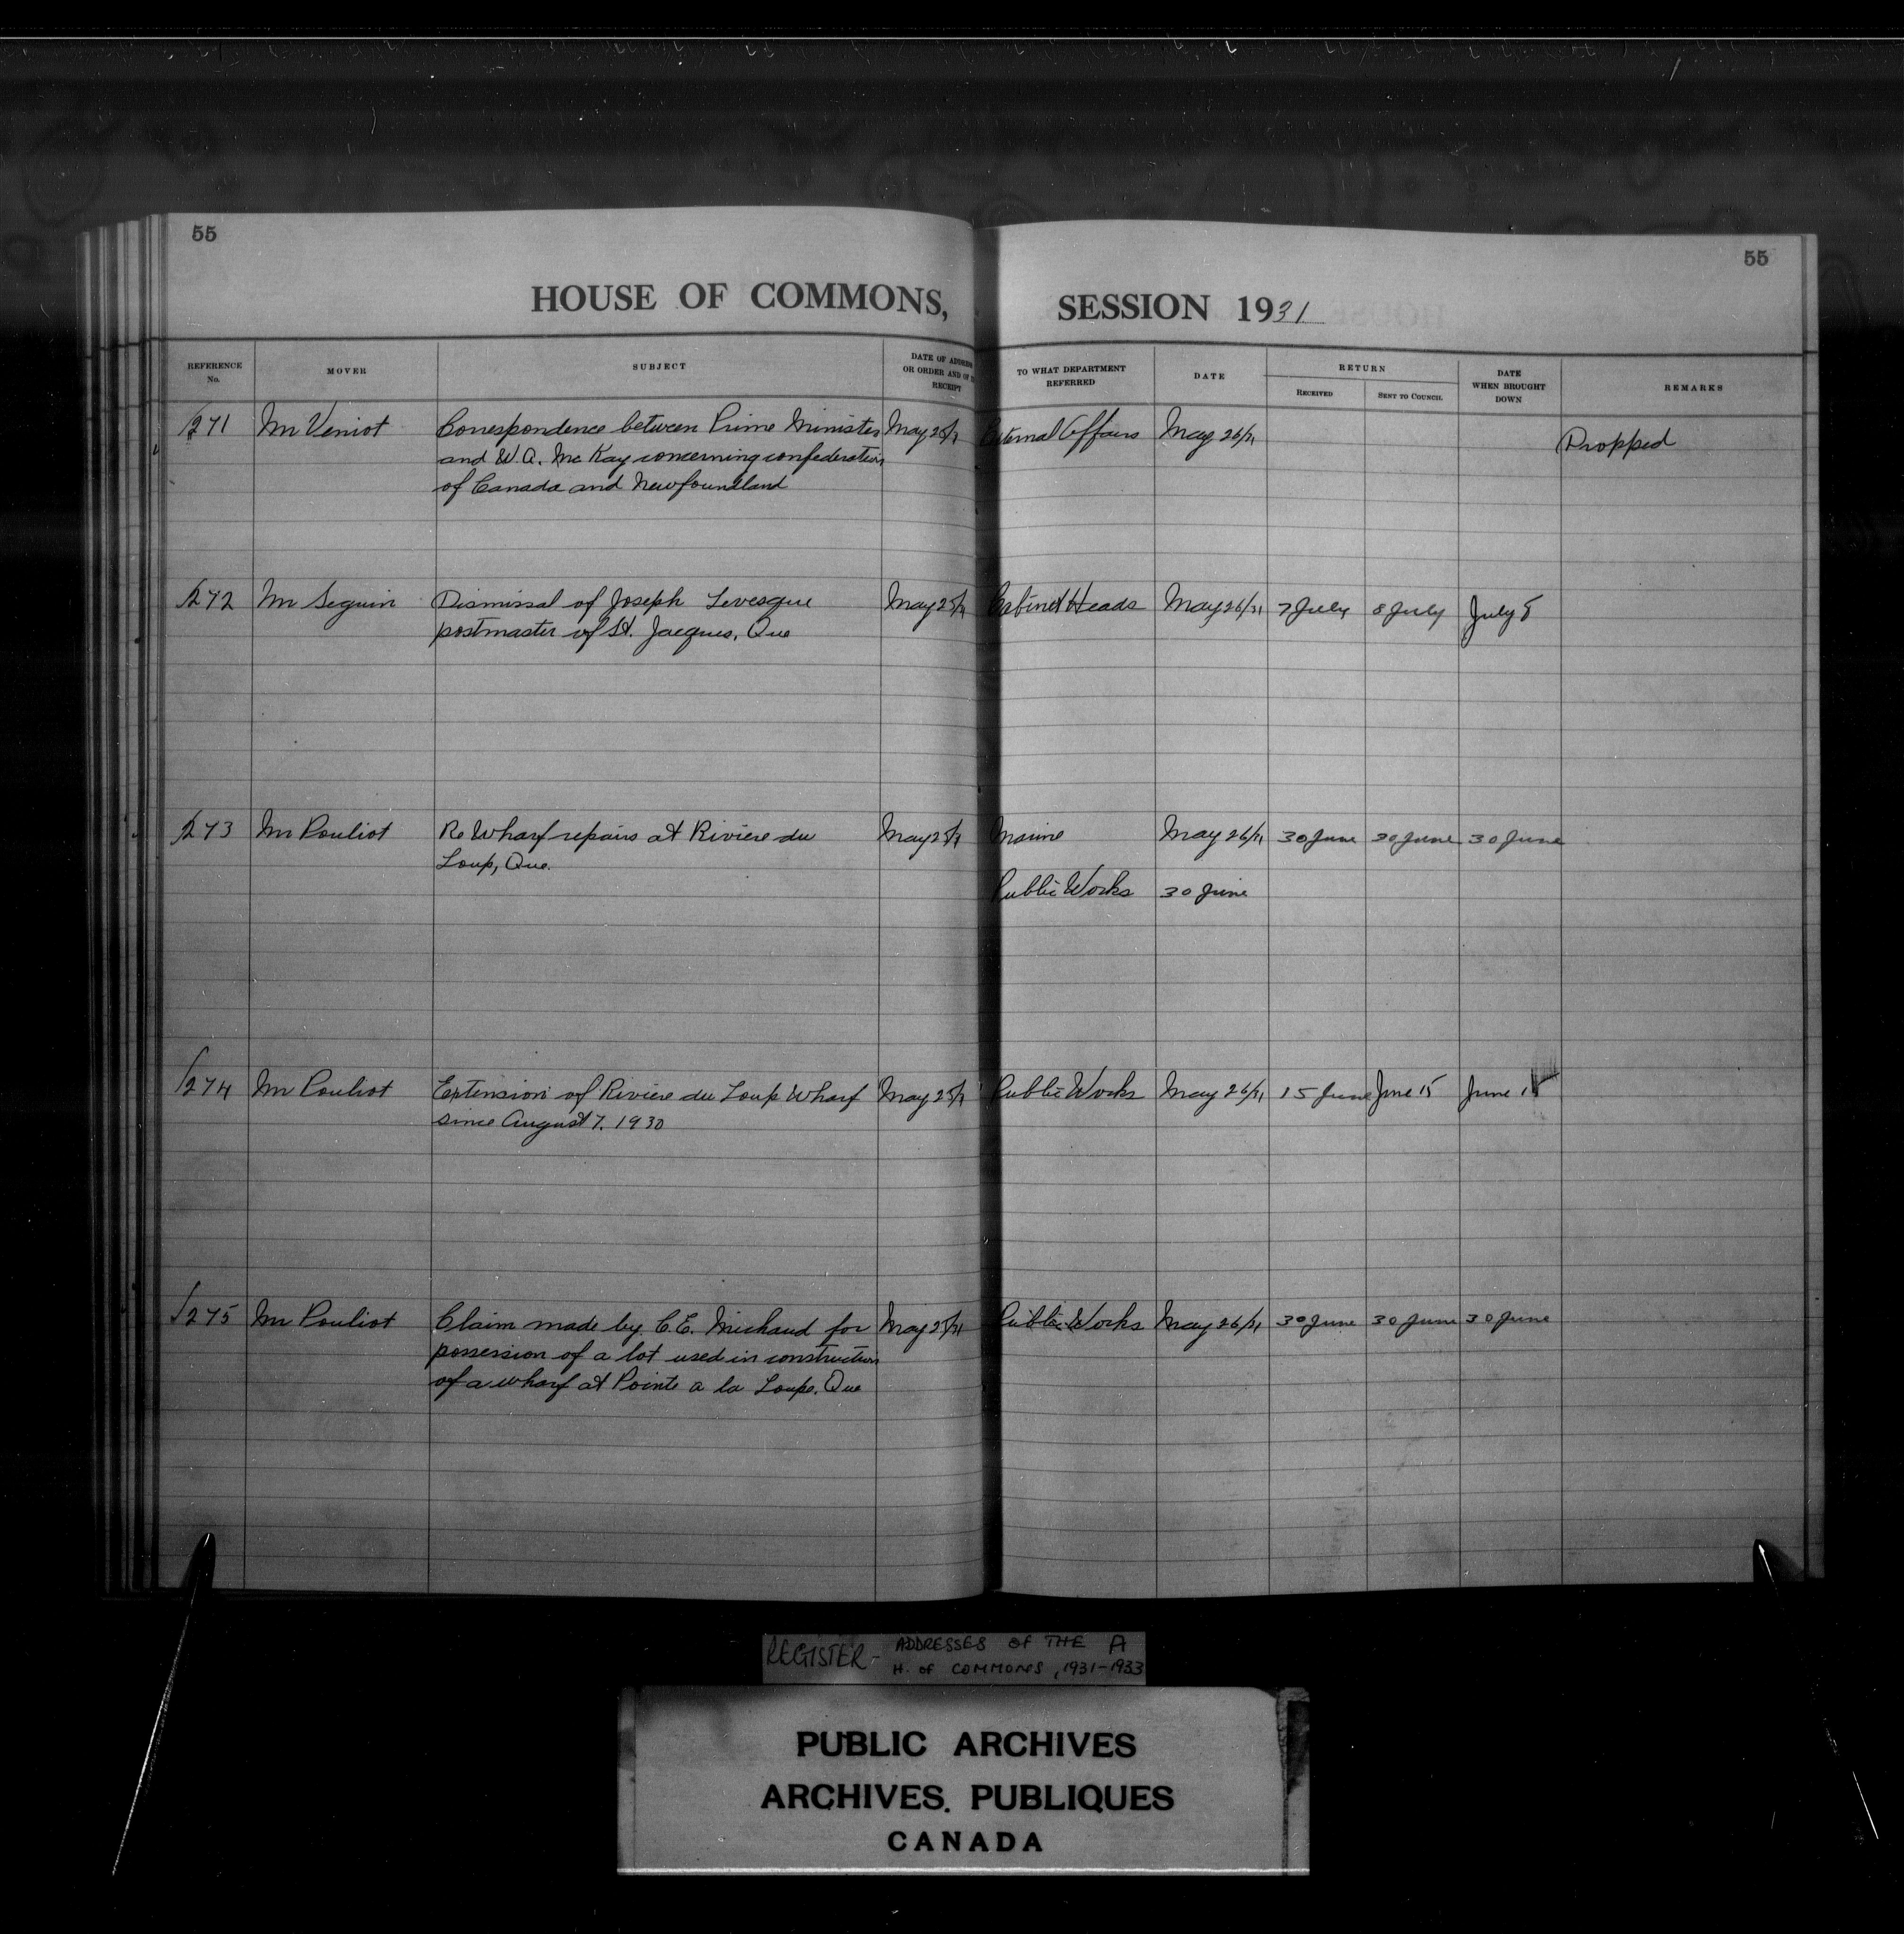 55
55
HOUSE OF COMMONS, SESSION 1931
REFERENCE No. MOVER SUBJECT DATE OF ADDRESS OR ORDER AND OF RECEIPT TO WHAT DEPARTMENT REFERRED DATE RETURN RECEIVED SENT TO COUNCIL DATE WHEN BROUGHT DOWN REMARKS
271 Mr Veniot Correspondence between Prime Minister May 25/31 External Affairs May 26/31 Dropped
and W.A. McKay concerning confederation
of Canada and Newfoundland
272 Mr Seguin Dismissal of Joseph Levesque May 25/31 Cabinet Heads May 26/31 7 July 8 July July 8
postmaster of St. Jacques, Que
273 Mr Pouliot Re Wharf repairs at Riviere du May 25/31 Marine May 26/31 30 June 30 June 30 June
Loup, Que.
Public Works 30 June
274 Mr Pouliot Extension of Riviere du Loup Wharf May 25/31 Public Works May 26/31 15 June June 15 June 15
since August 7, 1930
275 Mr Pouliot Claim made by C.E. Michaud for May 25/31 Public Works May 26/31 30 June 30 June 30 June
possession of a lot used in construction
of a wharf at Pointe a la Loupe, Que
REGISTER - ADDRESSES OF THE A
H. OF COMMONS, 1931-1933
PUBLIC ARCHIVES
ARCHIVES PUBLIQUES
CANADA